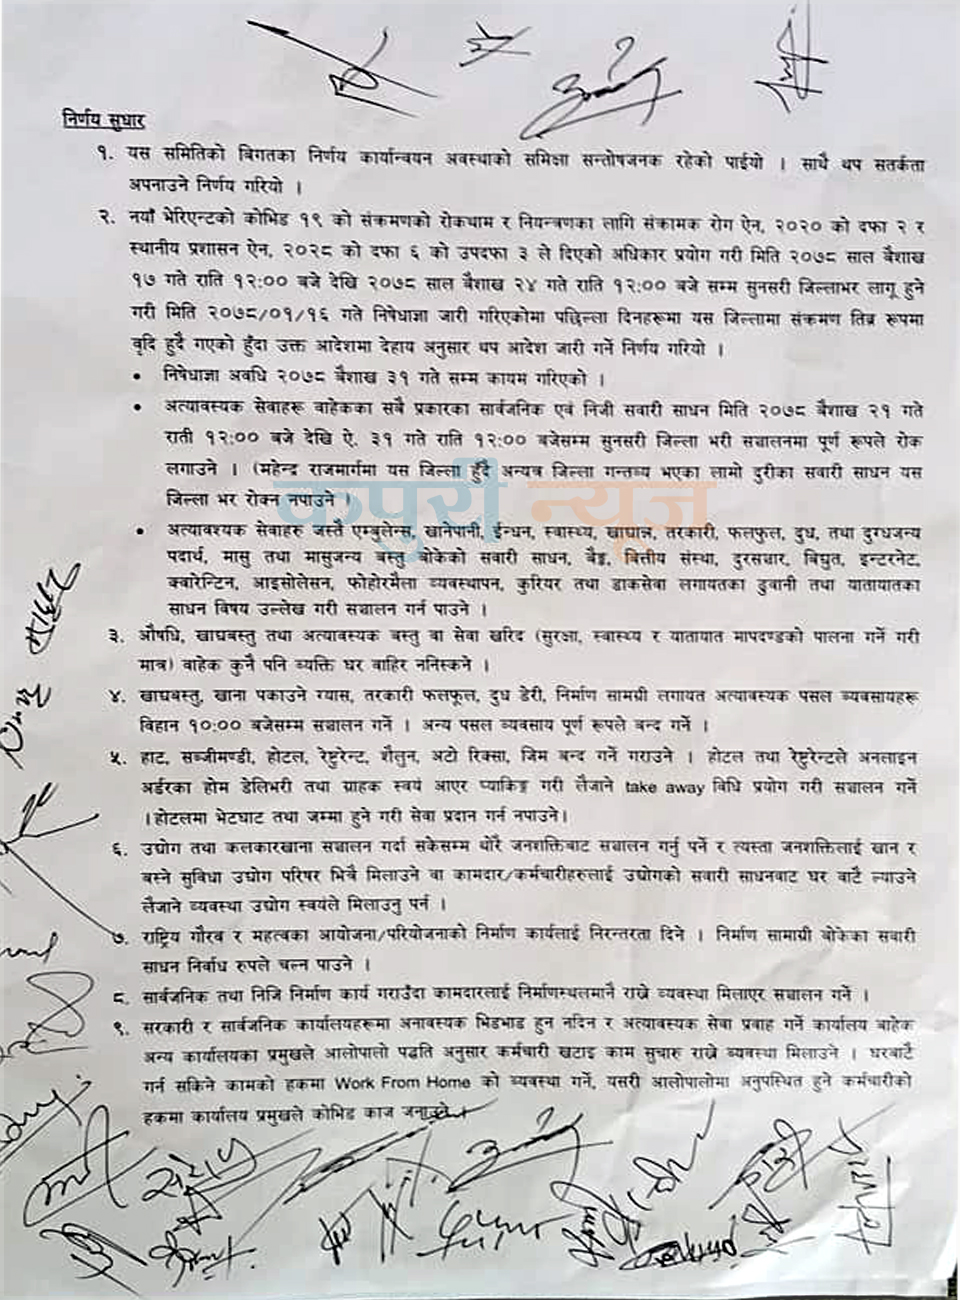 निर्णय सुधार
१. यस समितिको बिगतका निर्णय कार्यान्वयन अवस्थाको समिक्षा सन्तोषजनक रहेको पाईयो । साथै थप सतर्कता
अपनाउने निर्णय गरियो ।
२. नयाँ भेरिएन्टको कोभिड १९ को संक्रमणको रोकथाम र नियन्त्रणका लागि संक्रामक रोग ऐन, २०२० को दफा २ र
स्थानीय प्रशासन ऐन, २०२८ को दफा ६ को उपदफा ३ ले दिएको अधिकार प्रयोग गरी मिति २०७८ साल बैशाख
१७ गते राति १२:०० बजे देखि २०७८ साल बैशाख २४ गते राति १२:०० बजे सम्म सुनसरी जिल्लाभर लागू हुने
गरी मिति २०७८/०१/१६ गते निषेधाज्ञा जारी गरिएकोमा पछिल्ला दिनहरूमा यस जिल्लामा संक्रमण तिब्र रूपमा
वृदि हुदै गएको हुँदा उक्त आदेशमा देहाय अनुसार थप आदेश जारी गर्ने निर्णय गरियो ।
• निषेधाज्ञा अवधि २०७८ बैशाख ३१ गते सम्म कायम गरिएको ।
• अत्यावस्यक सेवाहरू वाहेकका सबै प्रकारका सार्वजनिक एवं निजी सवारी साधन मिति २०७८ बैशाख २१ गते
राती १२:०० बजे देखि ऐ. ३१ गते राति १२:०० बजेसम्म सुनसरी जिल्ला भरी सञ्चालनमा पूर्ण रूपले रोक
लगाउने । (महेन्द्र राजमार्गमा यस जिल्ला हुँदै अन्यत्र जिल्ला गन्तब्य भएका लामो दुरीका सवारी साधन यस
जिल्ला भर रोक्न नपाउने ।
कपुरी न्यूज
• अत्यावश्यक सेवाहरु जस्तै एम्बुलेन्स, खानेपानी, ईन्धन, स्वास्थ्य, खाद्यान्न, तरकारी, फलफुल, दुध, तथा दुग्धजन्य
पदार्थ, मासु तथा मासुजन्य बस्तु बोकेको सवारी साधन, बैङ्क, बित्तीय संस्था, दुरसञ्चार, बिद्युत, इन्टरनेट,
क्वारेन्टिन, आइसोलेसन, फोहोरमैला व्यवस्थापन, कुरियर तथा डाकसेवा लगायतका ढुवानी तथा यातायातका
साधन विषय उल्लेख गरी सञ्चालन गर्न पाउने ।
३. औषधि, खाद्यबस्तु तथा अत्यावस्यक बस्तु वा सेवा खरिद (सुरक्षा, स्वास्थ्य र यातायात मापदण्डको पालना गर्ने गरी
मात्र) वाहेक कुनै पनि व्यक्ति घर वाहिर ननिस्कने ।
४. खाद्यबस्तु, खाना पकाउने ग्यास, तरकारी फलफूल, दुध डेरी, निर्माण सामग्री लगायत अत्यावस्यक पसल ब्यवसायहरू
विहान १०:०० बजेसम्म सञ्चालन गर्ने । अन्य पसल ब्यवसाय पूर्ण रूपले बन्द गर्ने ।
५. हाट, सब्जीमण्डी, होटल, रेष्टुरेन्ट, शैलुन, अटो रिक्सा, जिम बन्द गर्ने गराउने । होटल तथा रेष्टुरेन्टले अनलाइन
अर्डरका होम डेलिभरी तथा ग्राहक स्वयं आएर प्याकिङ्ग गरी लैजाने take away विधि प्रयोग गरी सञ्चालन गर्ने
। होटलमा भेटघाट तथा जम्मा हुने गरी सेवा प्रदान गर्न नपाउने।
६. उद्योग तथा कलकारखाना सञ्चालन गर्दा सकेसम्म थोरै जनशक्तिबाट सञ्चालन गर्नु पर्ने र त्यस्ता जनशक्तिलाई खान र
बस्ने सुविधा उद्योग परिषर भित्रै मिलाउने वा कामदार/कर्मचारीहरुलाई उद्योगको सवारी साधनवाट घर वाटै ल्याउने
लैजाने ब्यवस्था उद्योग स्वयंले मिलाउनु पर्ने ।
७. राष्ट्रिय गौरव र महत्वका आयोजना/परियोजनाको निर्माण कार्यलाई निरन्तरता दिने । निर्माण सामाग्री बोकेका सवारी
साधन निर्वाध रुपले चल्न पाउने ।
८. सार्वजनिक तथा निजि निर्माण कार्य गराउँदा कामदारलाई निर्माणस्थलमानै राख्ने ब्यवस्था मिलाएर सञ्चालन गर्ने ।
९. सरकारी र सार्वजनिक कार्यालयहरूमा अनावस्यक भिडभाड हुन नदिन र अत्यावस्यक सेवा प्रवाह गर्ने कार्यालय बाहेक
अन्य कार्यालयका प्रमुखले आलोपालो पद्धति अनुसार कर्मचारी खटाइ काम सुचारु राख्ने ब्यवस्था मिलाउने । घरबाटै
गर्न सकिने कामको हकमा Work From Home को ब्यवस्था गर्ने, यसरी आलोपालोमा अनुपस्थित हुने कर्मचारीको
हकमा कार्यालय प्रमुखले कोभिड काज जनाउने ।